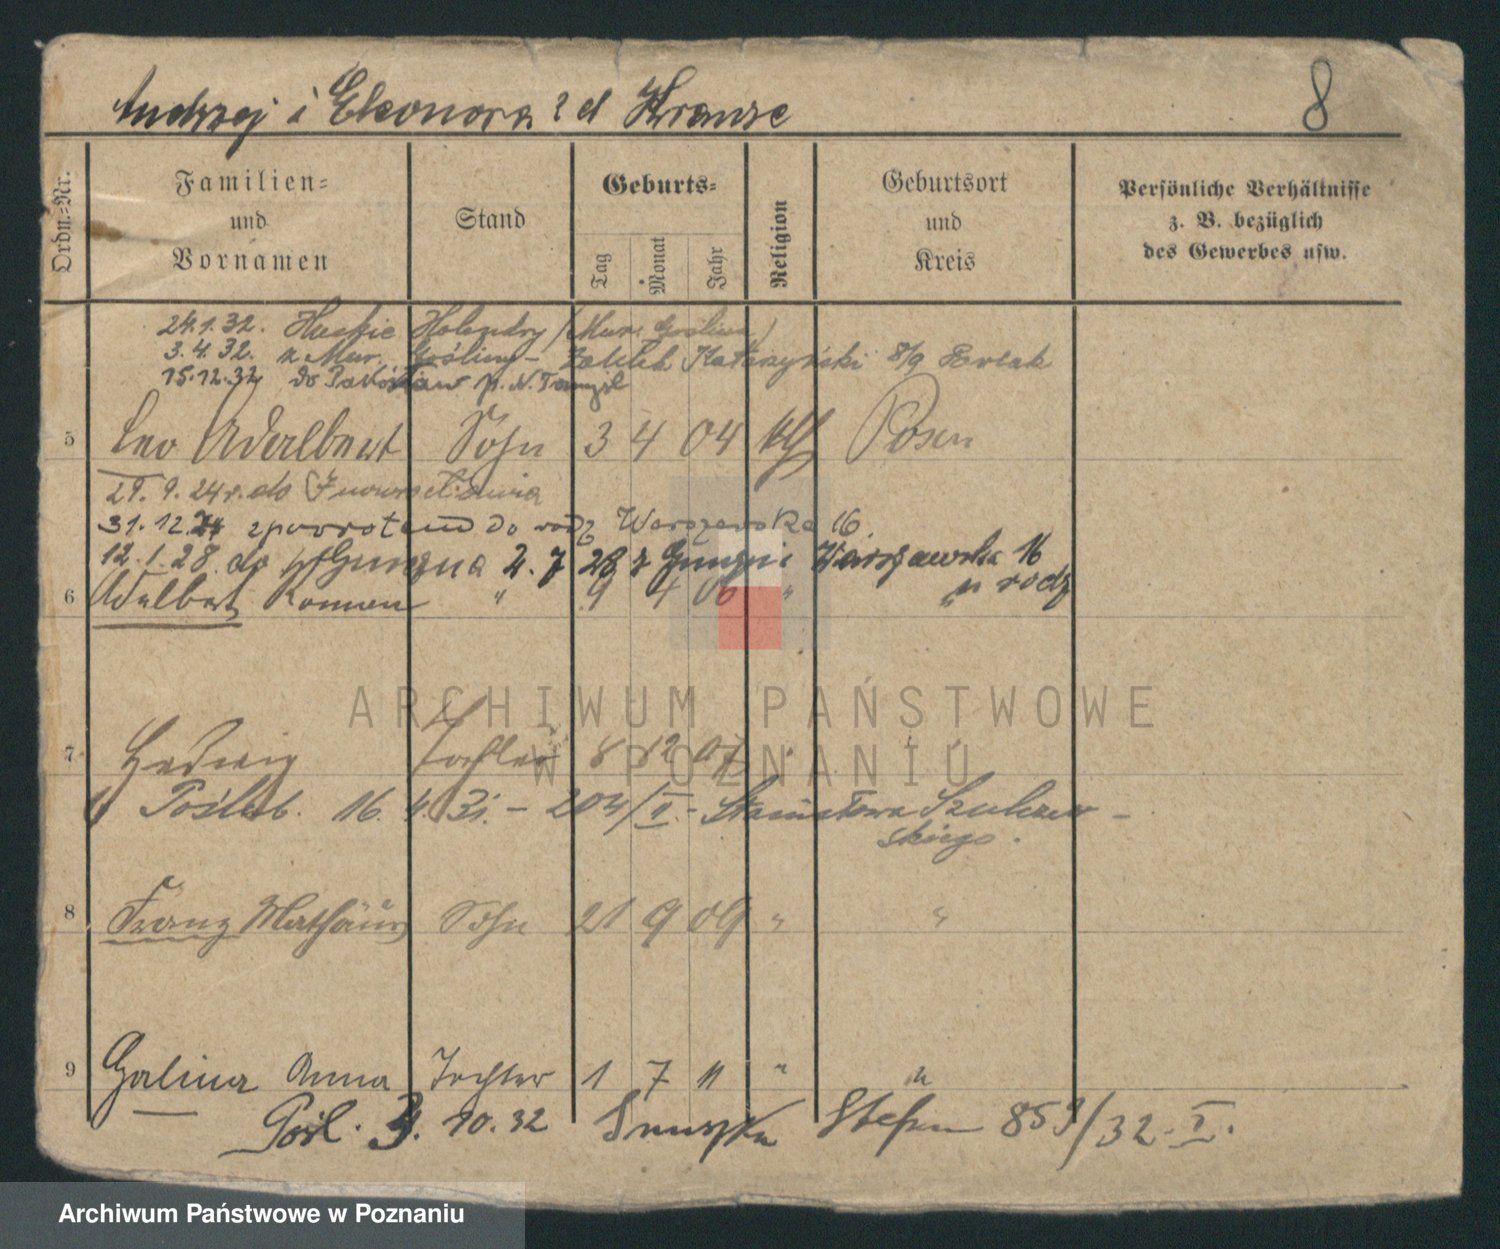 Andrzej i Eleonora z d Krause
8
Ordn.-Nr.
Familien-
und
Vornamen
Stand
Geburts-
Tag
Monat
Jahr
Religion
Geburtsort
und
Kreis
Persönliche Verhältnisse
z. B. bezüglich
des Gewerbes usw.
24.1.32. Holendry (Mur. Goślina)
3.4.32. z Mur. Gośliny - Katarzyński 8/9
15.12.32 do p. N. Tomyśl
5 Leo Adalbert Sohn 3 4 04 kth Posen
29. 9. 24 r. do
31.12.24 z powrotem do rodz Warszawska 16.
12.1.28. do Gniezna 2.7 28 z Gniezna Warszawska 16
u rodz
6 Adalbert Roman " 9 4 06 " "
7 Hedwig Tochter 8 12 07 "
Poślub. 16. 4. 31. - 204/II. - Stanisława Szulczew-
skiego.
8 Franz Mathäus Sohn 21 9 09 " "
9 Galina Anna Tochter 1 7 11 " "
Pośl. 3. 10. 32 Stefan 859/32. I.
ARCHIWUM PAŃSTWOWE
W POZNANIU
Archiwum Państwowe w Poznaniu